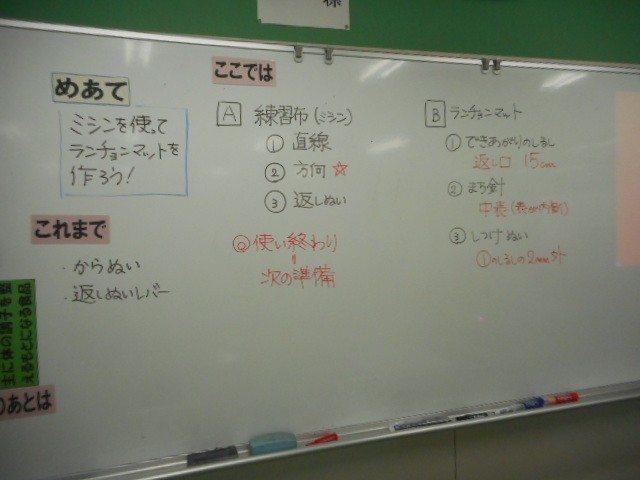 様
ここでは
めあて
ミシンを使って
ランチョンマットを
作ろう!
これまで
・からぬい
・返しぬいレバー
主に体の調子を整
えるもとになる食品
のあとは
A 練習布(ミシン)
① 直線
② 方向 ☆
③ 返しぬい
◎使い終わり
次の準備
B ランチョンマット
① できあがりのしるし
返し口 15cm
② まち針
中表(表が内側)
③ しつけぬい
①のしるしの2mm外